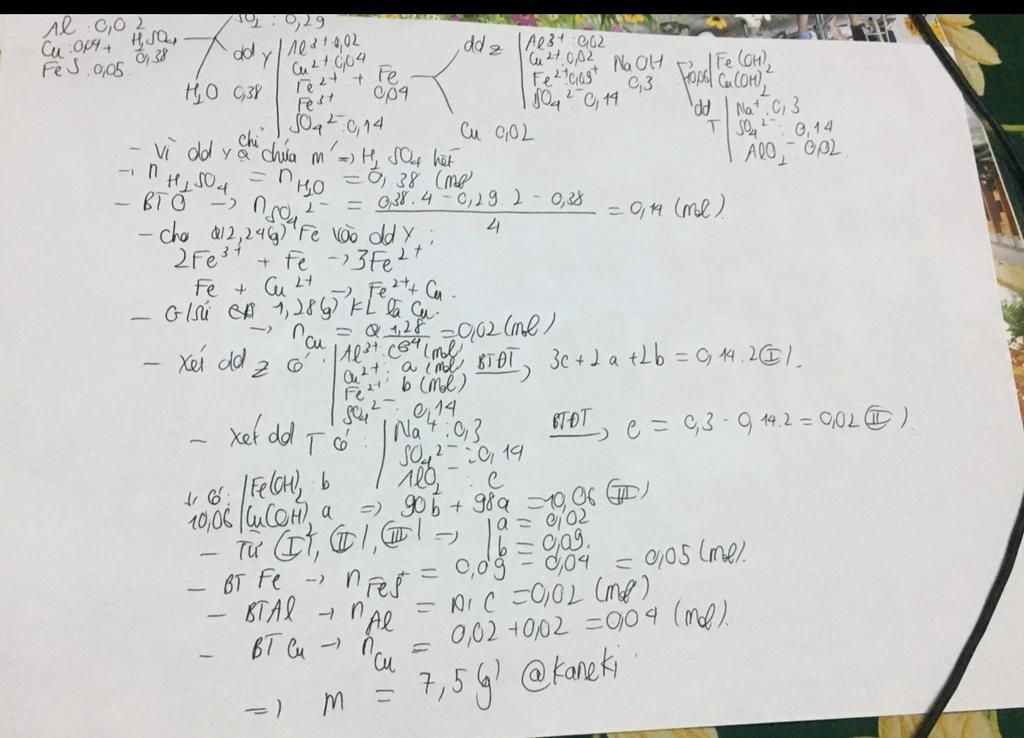 SO2 : 0,29
Al : 0,02
Cu : 0,04 + H2SO4 0,38
FeS : 0,05
H2O 0,38
dd Y | Al3+ : 0,02
Cu2+ : 0,04
Fe2+ + Fe 0,04
Fe3+
SO4 2- : 0,14
dd Z | Al3+ : 0,02
Cu2+ : 0,02
Fe2+ 0,09
SO4 2- 0,14
Cu : 0,02
NaOH 0,3
10,06 | Fe(OH)2
Cu(OH)2
dd T | Na+ : 0,3
SO4 2- : 0,14
AlO2- 0,02
- Vì dd Y chỉ chứa m' => H2SO4 hết
-> nH2SO4 = nH2O = 0,38 (mol)
- BTO -> nSO4 2- = 0,38.4 - 0,29.2 - 0,38 / 4 = 0,14 (mol).
- cho 2,24(g) Fe vào dd Y :
2Fe3+ + Fe -> 3Fe2+
Fe + Cu2+ -> Fe2+ + Cu.
- G/sử 1,28(g) KL là Cu.
-> nCu = 1,28 / 64 = 0,02 (mol)
- Xét dd Z có : | Al3+ : c (mol)
Cu2+ : a (mol)
Fe2+ : b (mol)
SO4 2- : 0,14
BTĐT, 3c + 2a + 2b = 0,14.2 (I).
- Xét dd T có : | Na+ : 0,3
SO4 2- : 0,14
AlO2- : c
BTĐT, c = 0,3 - 0,14.2 = 0,02 (II).
có: 10,06 | Fe(OH)2 b
Cu(OH)2 a => 90b + 98a = 10,06 (III)
- Từ (I), (II), (III) => | a = 0,02
b = 0,09.
- BT Fe -> nFeS = 0,09 - 0,04 = 0,05 (mol).
- BTAl -> nAl = c = 0,02 (mol)
- BT Cu -> nCu = 0,02 + 0,02 = 0,04 (mol).
=> m = 7,5 (g) @kaneki